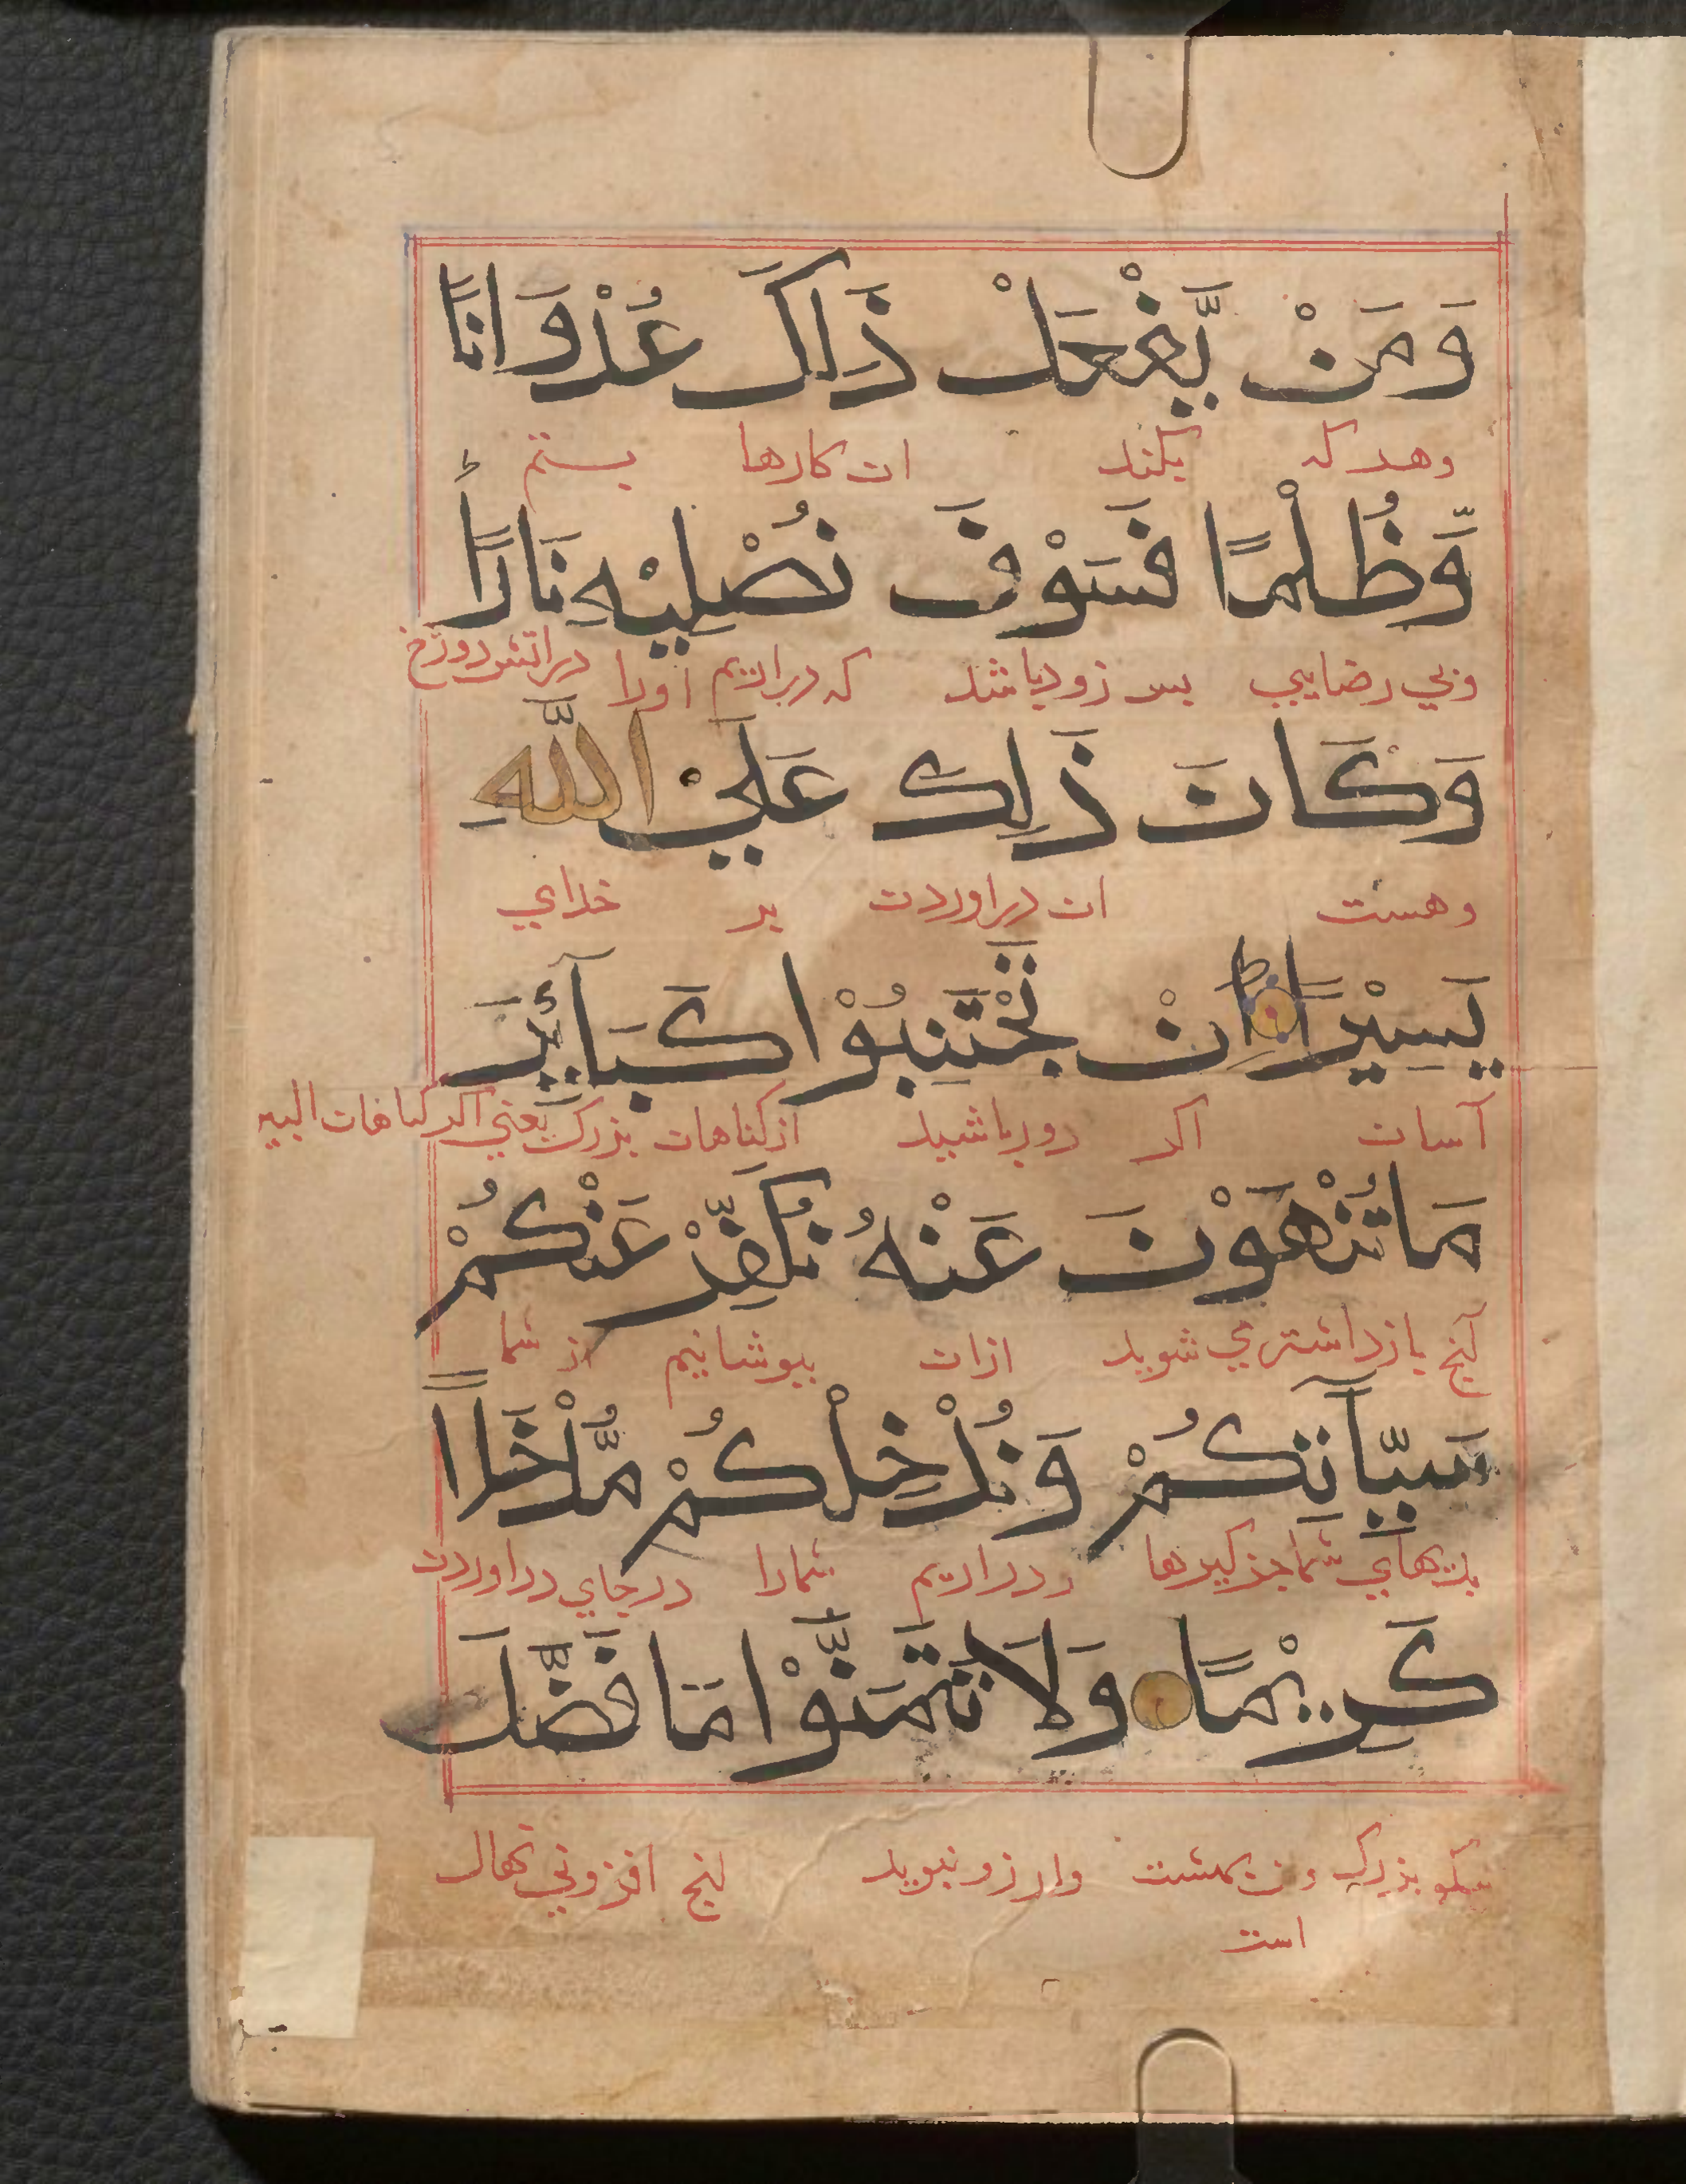 وَمَنْ يَّفْعَلْ ذَالِكَ عُدْوَانًا
وهر که بکند ان کارها بستم
وَّظُلْمًا فَسَوْفَ نُصْلِيْهِ نَارًا
وبي رضايي بس زود باشد که دراريم اورا دراتش دوزخ
وَكَانَ ذَلِكَ عَلَيْ اللَّهِ
وهست ان دراوردن بر خداي
يَسِيْرًا ط اِنْ تَجْتَنِبُوْا كَبَآئِرَ
آسان اکر دور باشيد از کناهان بزرک يعني اکر کناهان
مَا تُنْهَوْنَ عَنْهُ نُكَفِّرْ عَنْكُمْ
آنچ بازداشته مي شويد ازان بپوشانيم از شما
سَيِّآتِكُمْ وَنُدْخِلْكُمْ مُّدْخَلًا
بديهاي شما جز کبيرها ودراريم شمارا درجاي دراوردن
كَرِيْمًا وَلَا تَتَمَنَّوْا مَا فَضَّلَ
نيکو بزرک وان بهشت وارزو نبريد انچ افزوني نهاد
است